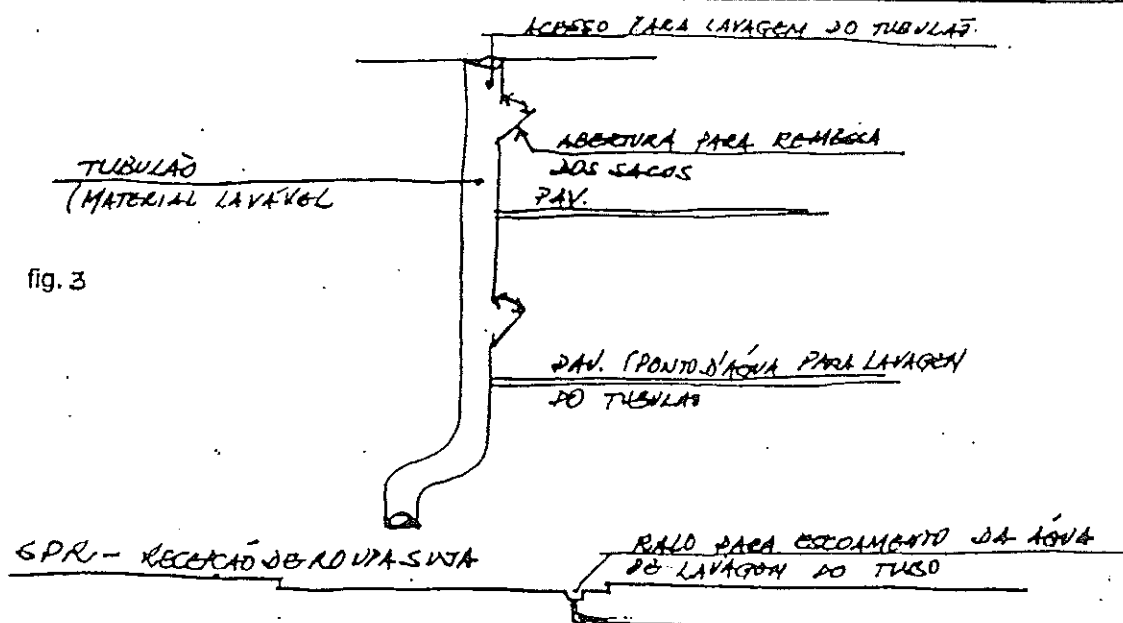 ACESSO PARA LAVAGEM DO TUBULAÕ.
ABERTURA PARA REMESSA
DOS SACOS
TUBULAÕ
(MATERIAL LAVÁVEL
PAV.
fig. 3
PAV. (PONTO D'ÁGUA PARA LAVAGEM
DO TUBULAÕ
SPR - RECEPÇÃO DE ROUPA SUJA
RALO PARA ESCOAMENTO DA ÁGUA
DE LAVAGEM DO TUBO